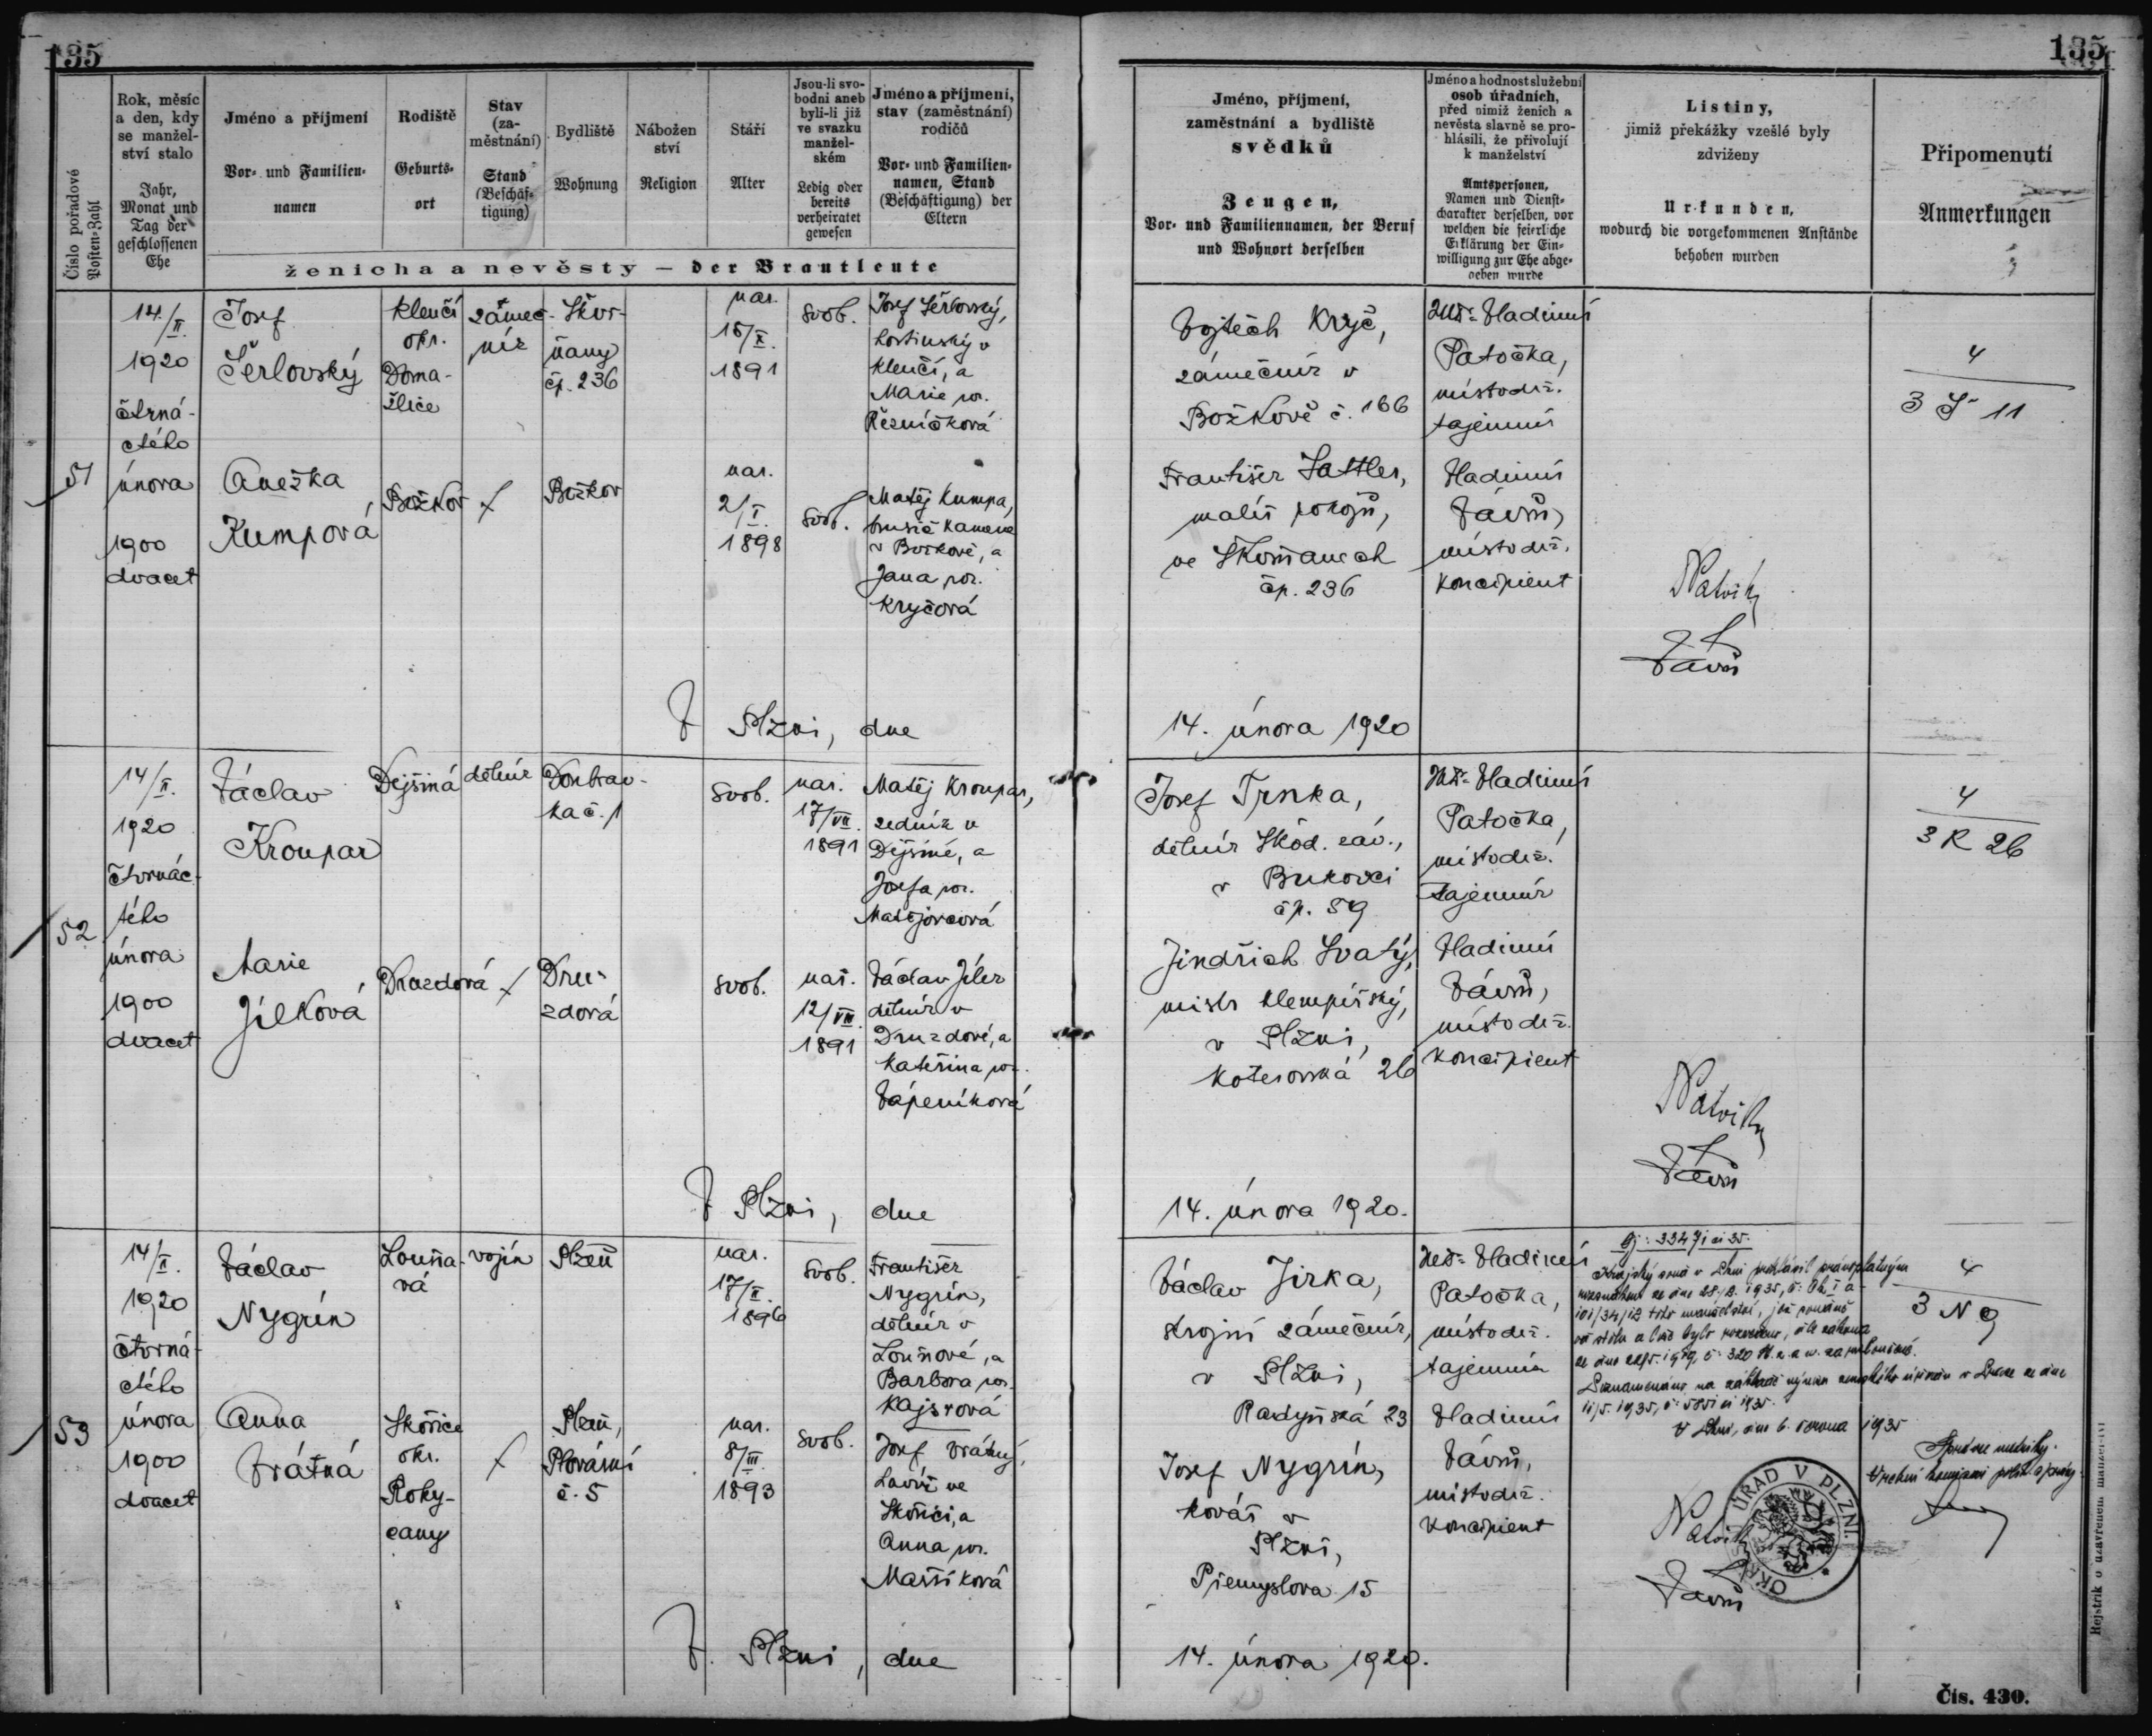 135
Číslo pořadové
Posten-Zahl
Rok, měsíc
a den, kdy
se manžel-
ství stalo
Jahr,
Monat und
Tag der
geschlossenen
Ehe
Jméno a příjmení
Vor- und Familien-
namen
Rodiště
Geburts-
ort
Stav
(za-
městnání)
Stand
(Beschäf-
tigung)
Bydliště
Wohnung
Nábožen
ství
Religion
Stáří
Alter
Jsou-li svo-
bodni aneb
byli-li již
ve svazku
manžel-
ském
Ledig oder
bereits
verheiratet
gewesen
Jméno a příjmení,
stav (zaměstnání)
rodičů
Vor- und Familien-
namen, Stand
(Beschäftigung) der
Eltern
ženicha a nevěsty — der Brautleute
51
14./II.
1920
čtrná-
ctého
února
1900
dvacet
Josef
Šerlovský
Klenčí
okr.
Doma-
žlice
zámeč-
ník
Škvr-
ňany
čp. 236
nar.
15/X.
1891
svob.
Josef Šerlovský,
hostinský v
Klenčí, a
Marie roz.
Řezníčková
Anežka
Kumpová
Božkov
Božkov
nar.
2/I.
1898
svob.
Matěj Kumpa,
brusič kamene
v Božkově, a
Jana roz.
Kryčová
V Plzni, dne
52
14/II.
1920
čtrnác-
tého
února
1900
dvacet
Václav
Kroupar
Dejšiná
dělník
Doubrav-
ka č. 1
svob.
nar.
17/VII.
1891
Matěj Kroupar,
zedník v
Dejšině, a
Josefa roz.
Matějovcová
Marie
Jílková
Druzdová
Dru-
zdová
svob.
nar.
12/VII.
1891
Václav Jílek
dělník v
Druzdové, a
Kateřina roz.
Vápeníková
V Plzni, dne
53
14/II.
1920
čtrná-
ctého
února
1900
dvacet
Václav
Nygrín
Louňa-
vá
vojín
Plzeň
nar.
17/II.
1896
svob.
František
Nygrín,
dělník v
Louňové, a
Barbora roz.
Kajsrová
Anna
Vrátná
Skořice
okr.
Roky-
cany
Plzeň,
Plovární
č. 5
nar.
8/III.
1893
svob.
Josef Vrátný,
ve
Skořici, a
Anna roz.
Maršíková
V Plzni, dne
135
Jméno, příjmení,
zaměstnání a bydliště
svědků
Zeugen,
Vor- und Familiennamen, der Beruf
und Wohnort derselben
Jméno a hodnost služební
osob úřadních,
před nimiž ženich a
nevěsta slavně se pro-
hlásili, že přivolují
k manželství
Amtspersonen,
Namen und Dienst-
charakter derselben, vor
welchen die feierliche
Erklärung der Ein-
willigung zur Ehe abge-
geben wurde
Listiny,
jimiž překážky vzešlé byly
zdviženy
Urkunden,
wodurch die vorgekommenen Anstände
behoben wurden
Připomenutí
Anmerkungen
Vojtěch Kryč,
zámečník v
Božkově č. 166
František Sattler,
malíř pokojů,
ve Škvrňanech
čp. 236
JUDr. Vladimír
Patočka,
místodrž.
tajemník
Vladimír
Vávrů,
místodrž.
koncipient
Vávrů
4
3 Š 11
14. února 1920
Josef Trnka,
dělník Škod. záv.,
v Bukovci
čp. 59
Jindřich Svatý,
mistr klempířský,
v Plzni,
Koterovská 26
JUDr. Vladimír
Patočka,
místodrž.
tajemník
Vladimír
Vávrů,
místodrž.
koncipient
Vávrů
4
3 K 26
14. února 1920.
Václav Jirka,
strojní zámečník,
v Plzni,
Radyňská 23
Josef Nygrín,
kovář v
Plzni,
Přemyslova 15
JUDr. Vladimír
Patočka,
místodrž.
tajemník
Vladimír
Vávrů,
místodrž.
koncipient
Krajský soud v Plzni prohlásil
ze dne 1935, č.
toto manželství, jež
bylo rozvedeno, dle zákona
ze dne 22/5. 1919, č. 320 za rozloučené.
Poznamenáno na základě výnosu zemského úřadu v Praze ze dne
11/5. 1935,
V Plzni, dne 6. června 1935
Správce matriky:
Vrchní komisař polit. správy
OKRESNÍ ÚŘAD V PLZNI.
Vávrů
4
3 N 9
14. února 1920.
Rejstřík o uzavřeném manželství
Čís. 430.